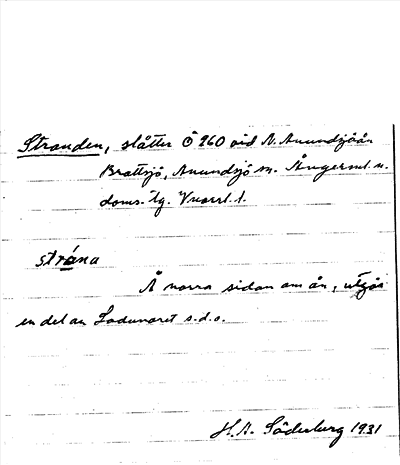 Stranden, slåtter Ö 260 vid N. Anundsjöån
Brattsjö, Anundsjö sn. Ångerml. n.
doms. tg. V norrl. l.
strána
Å norra sidan om ån, utgör
en del av Ladunäret s.d.o.
H. A. Söderberg 1931